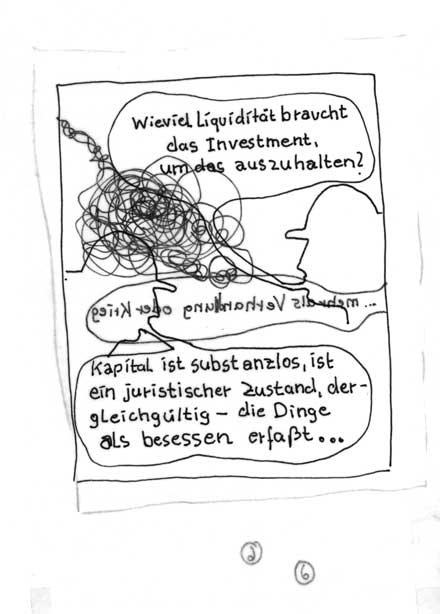 Wieviel Liquidität braucht
das Investment,
um das auszuhalten?
... mehr als Verhandlung oder Krieg
Kapital ist substanzlos, ist
ein juristischer Zustand, der-
gleichgültig – die Dinge
als besessen erfaßt...
6